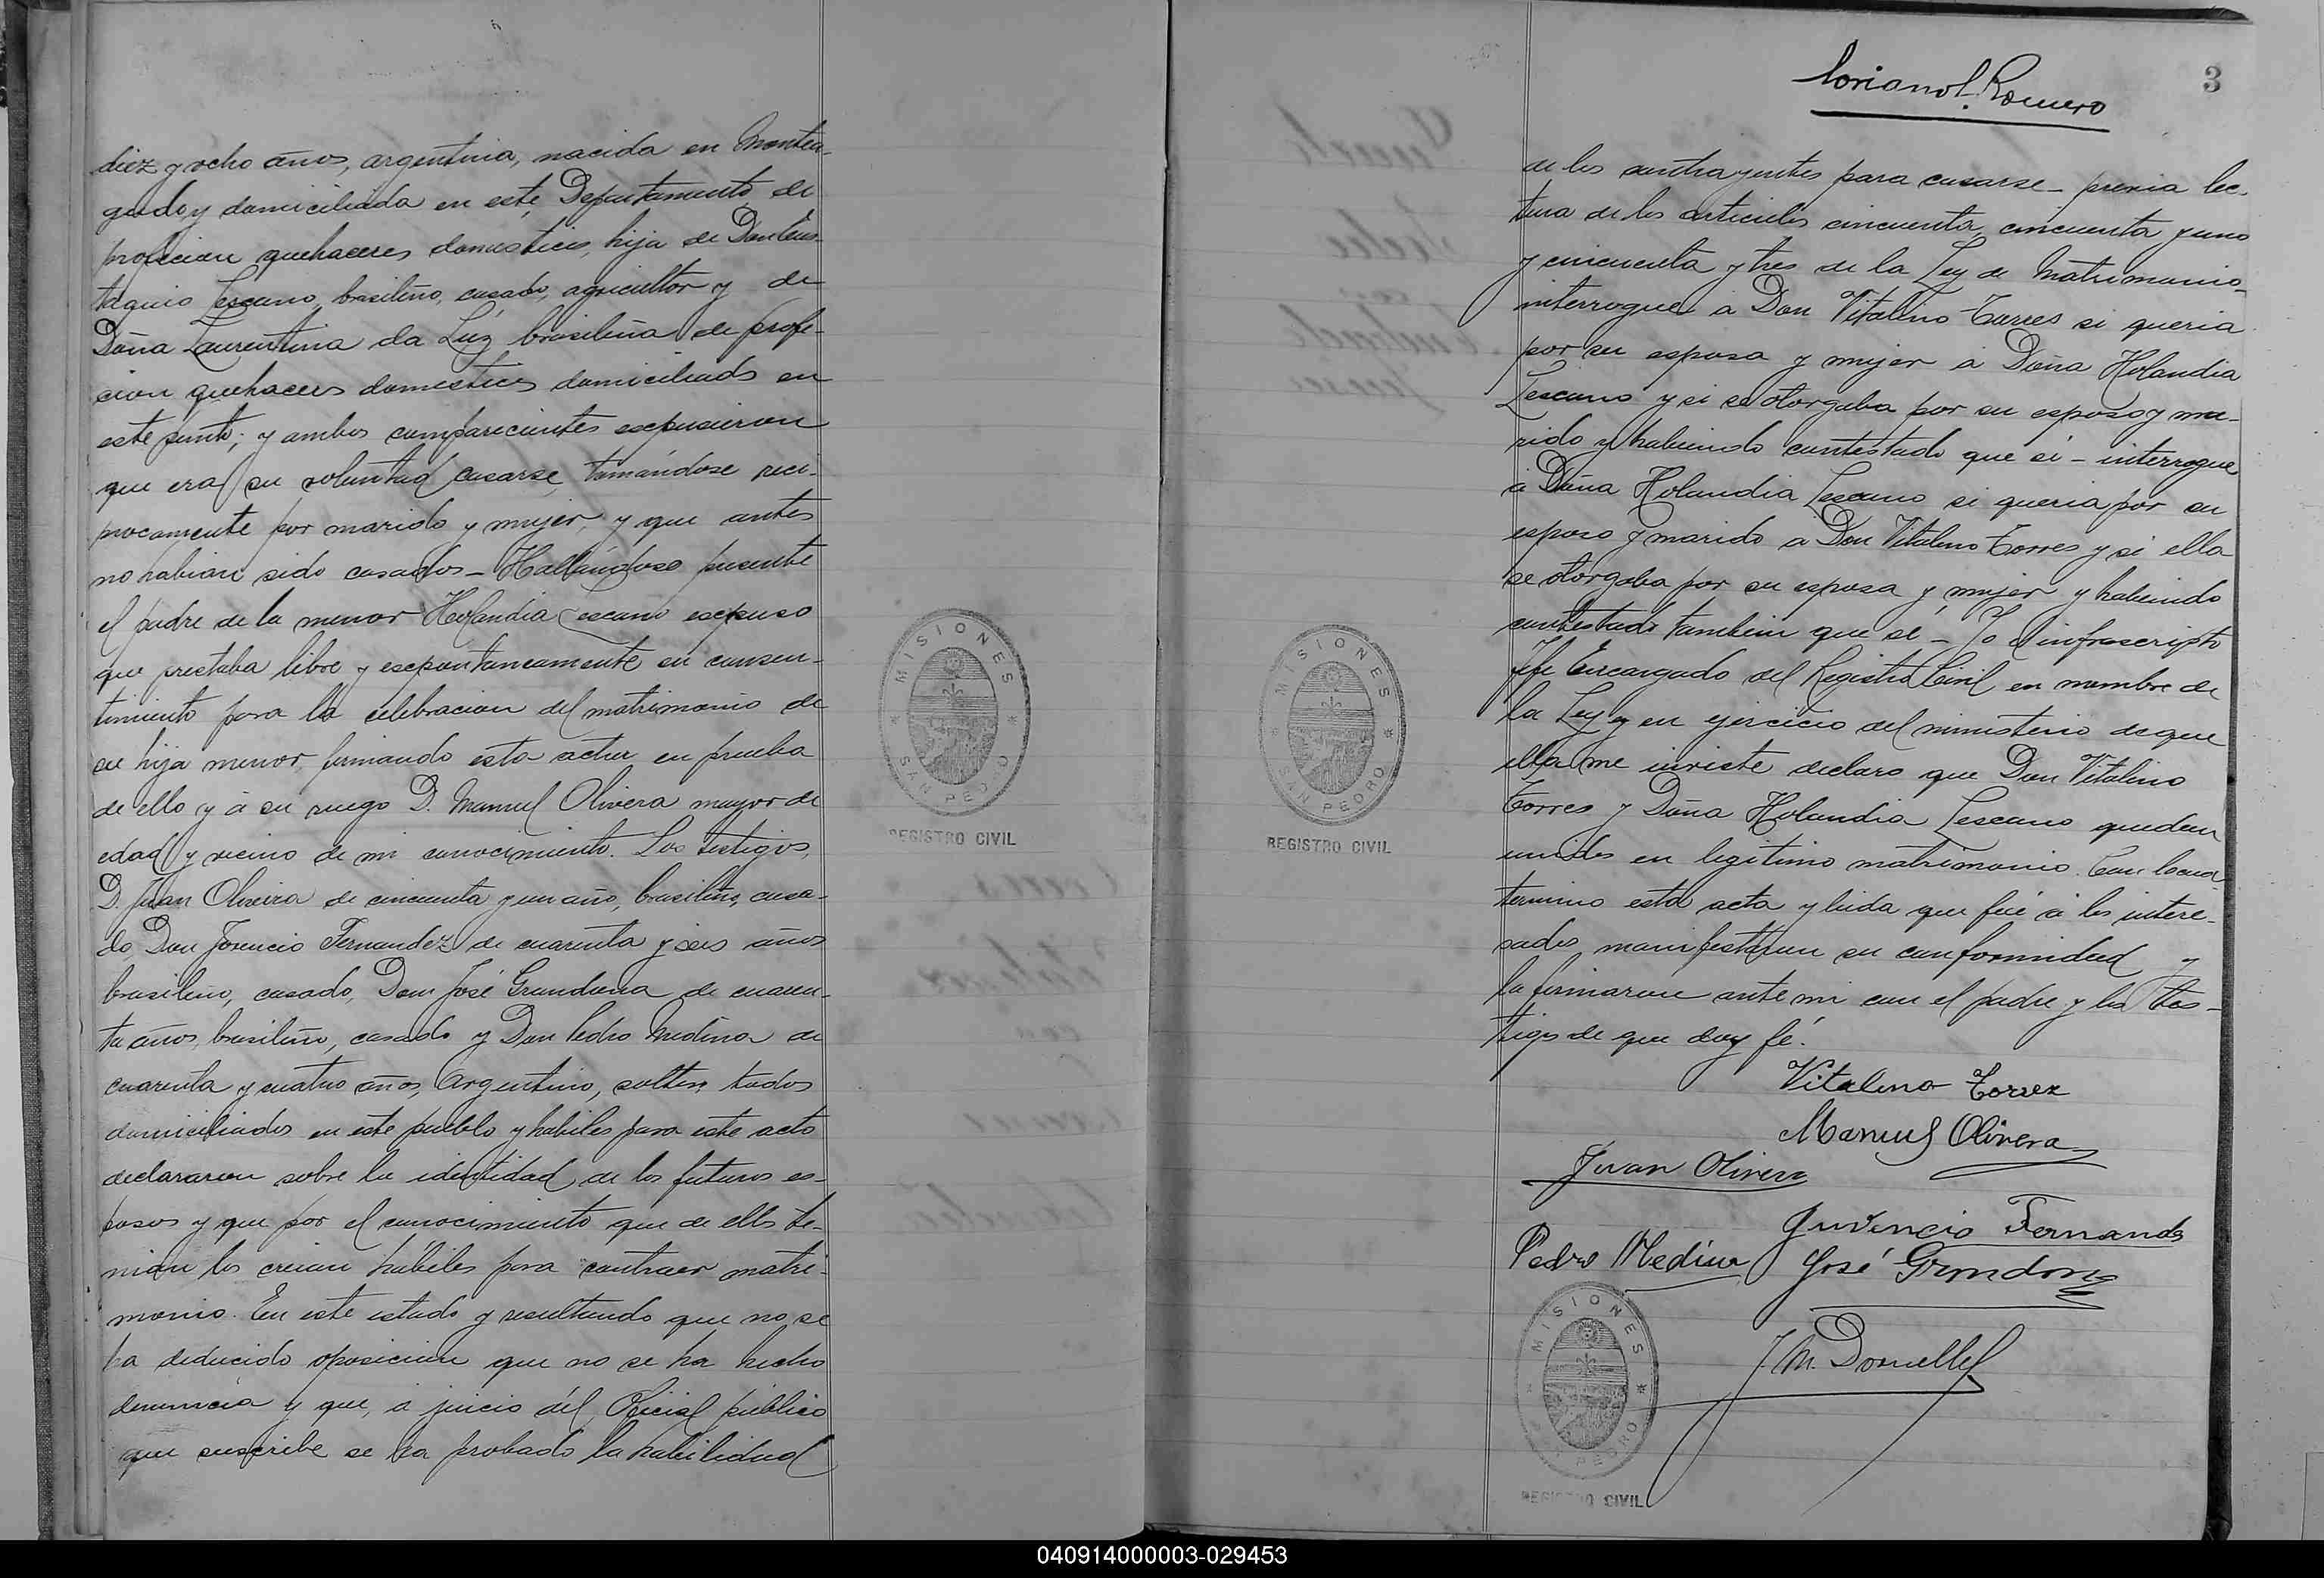 diez y ocho años, argentina, nacida en Monteagudo
gudo y domiciliada en este Departamento, de
profecion quehaceres domesticos, hija de Don Eus-
taquio Lescano, brasileño, casado, agricultor y de
Doña Laurentina da Luz brasileña de profe-
cion quehaceres domesticos domiciliados en
este punto; y ambos comparecientes expusieron
que era su voluntad casarse, tomándose reci-
procamente por marido y mujer, y que antes
no habian sido casados - Hallándose presente
el padre de la menor Holandia Lescano expuso
que prestaba libre y espontaneamente su consen-
timiento para la celebracion del matrimonio de
su hija menor, firmando esta acta en prueba
de ello y á su ruego D. Manuel Olivera mayor de
edad y vecino de mi conocimiento. Los testigos,
D. Juan Oliveira de cincuenta y un año, brasileño, casa-
do, Don Juvencio Fernandez de cuarenta y seis años
brasileño, casado, Don José Grundona de cuaren-
ta años, brasileño, casado y Don Pedro Medina de
cuarenta y cuatro años, Argentino, soltero, todos
domiciliados en este pueblo y habiles para este acto
declararon sobre la identidad de los futuros es-
posos y que por el conocimiento que de ellos te-
nian los creian hábiles para contraer matri-
monio. En este estado y resultando que no se
ha deducido oposicion que no se ha hecho
denuncia y que, á juicio del Oficial público
que suscribe se ha probado la habilidad
MISIONES
SAN PEDRO
REGISTRO CIVIL
Romero
3
de los contrayentes para casarse - previa lec-
tura de los articulos cincuenta, cincuenta y uno
y cincuenta y tres de la Ley de Matrimonio,
interrogué á Don Vitalino Torres si queria
por su esposa y mujer á Doña Holandia
Lescano y si se otorgaba por su esposo y ma-
rido y habiendo contestado que si - interrogue
á Doña Holandia Lescano si queria por su
esposo y marido á Don Vitalino Torres y si ella
se otorgaba por su esposa y mujer y habiendo
contestado tambien que sí - Yo el infrascripto
Jefe Encargado del Registro Civil en nombre de
la Ley y en ejercicio del ministerio de que
ella me inviste declaro que Don Vitalino
Torres y Doña Holandia Lescano quedan
unidos en legitimo matrimonio. Con lo cual
termino esta acta y leida que fué á los intere-
sados, manifestaron su conformidad y
la firmaron ante mi con el padre y los tes-
tigos de que doy fé.
Vitalino Torrez
Manuel Olivera
Juan Olivera
Juvencio Fernands
Pedro Medina
José Grondona
MISIONES
SAN PEDRO
REGISTRO CIVIL
MISIONES
PEDRO
REGISTRO CIVIL
040914000003-029453